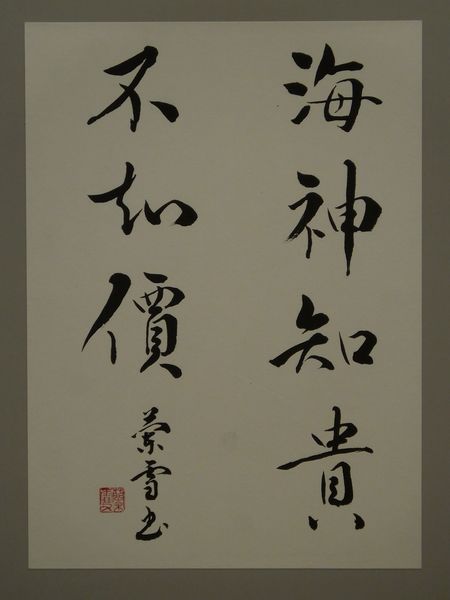 海神知貴
不知價
雪書